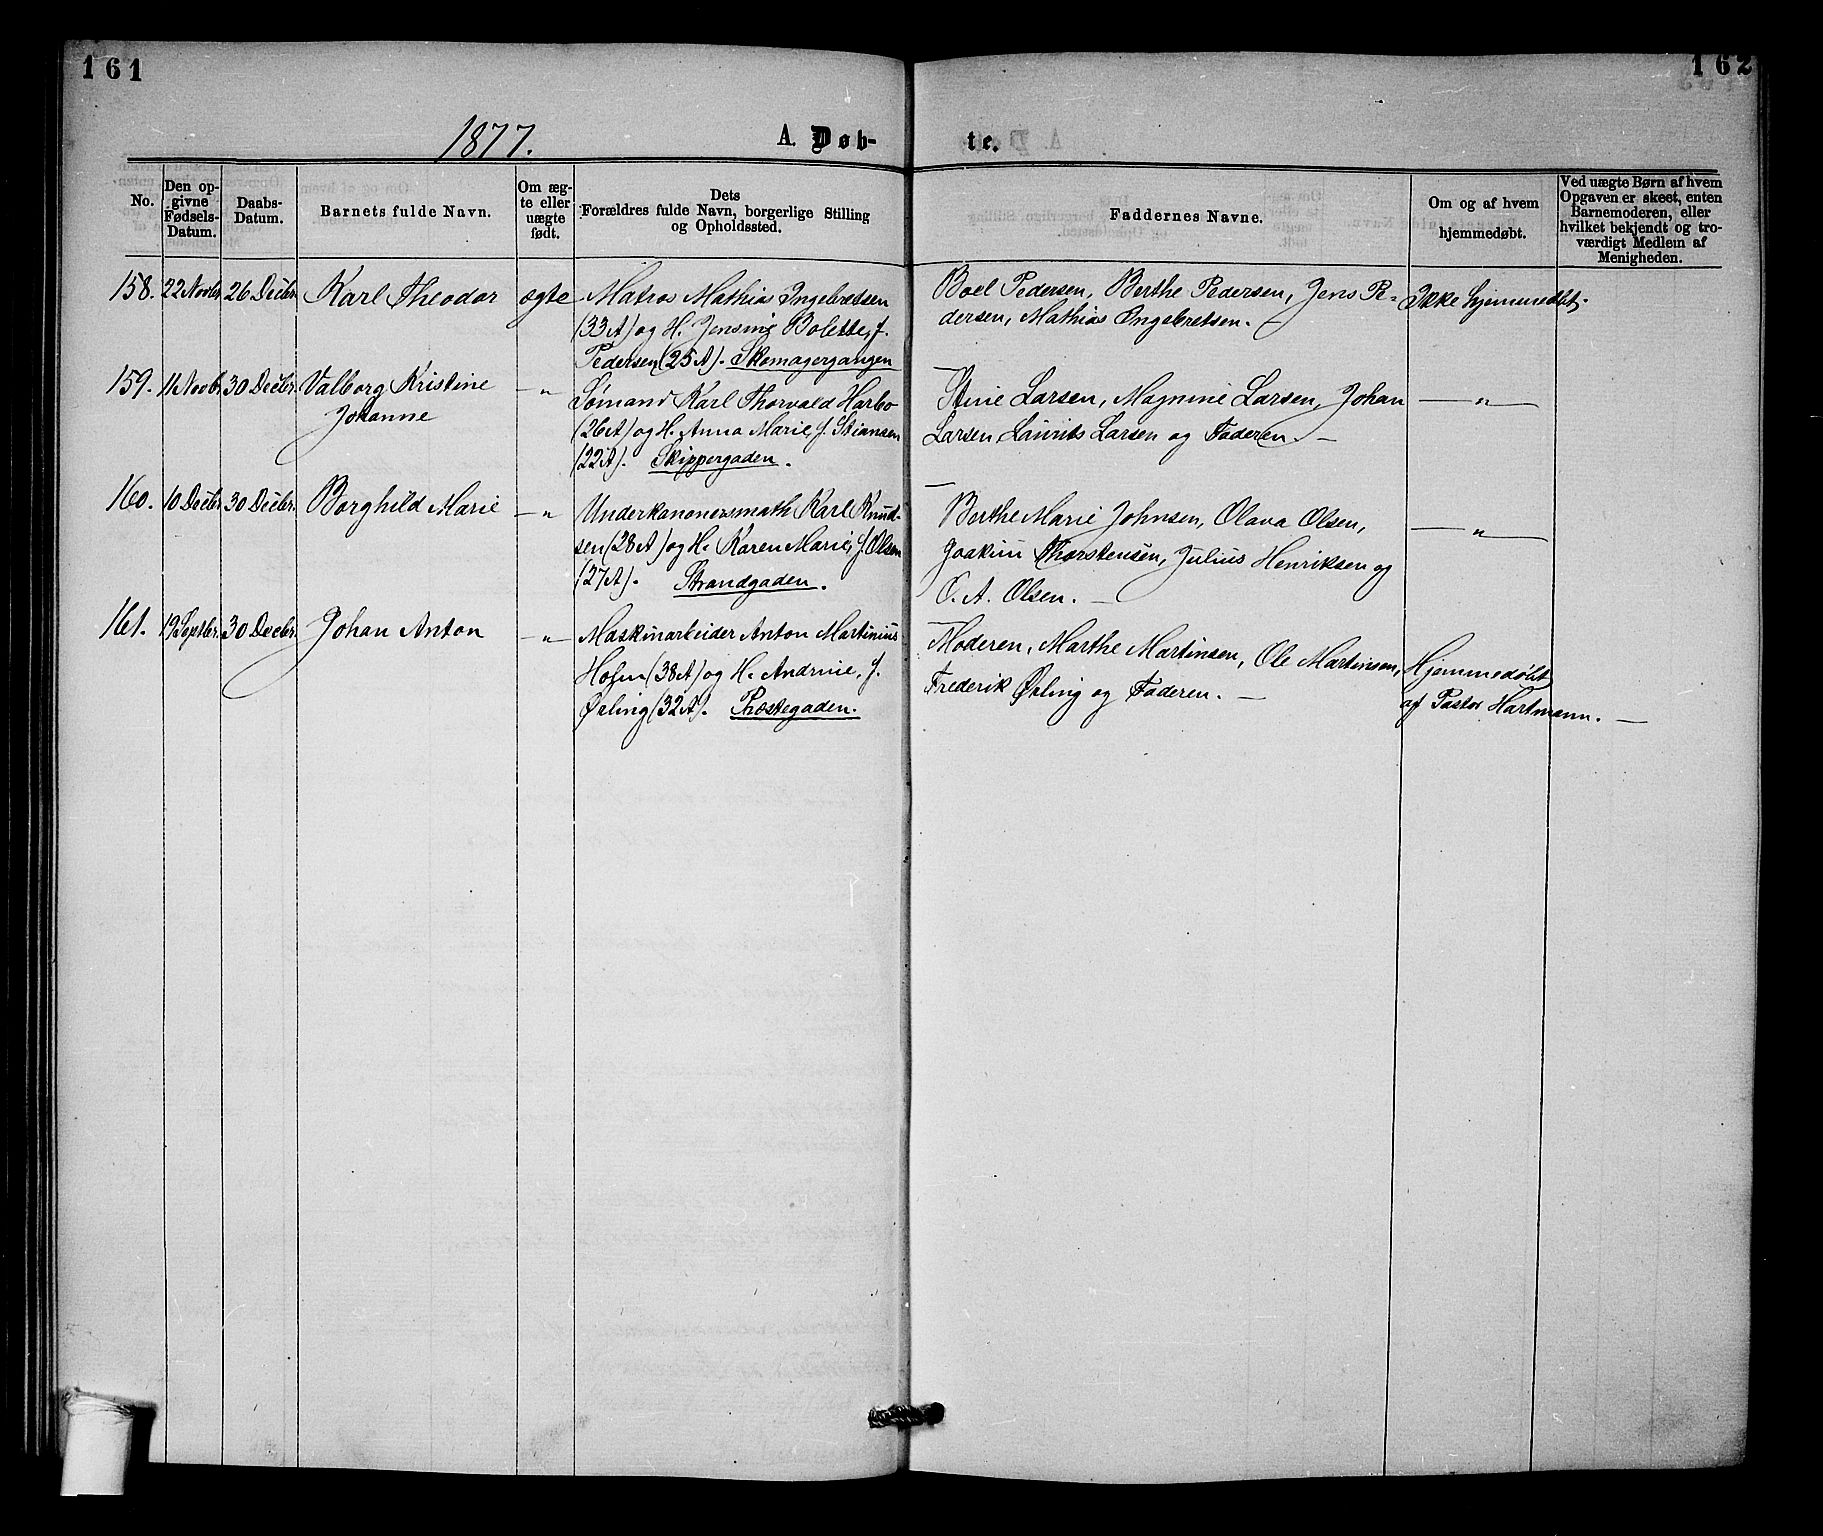 161
162
1877.
A. Døb-
te.
No.
Den op-
givne
Fødsels-
Datum.
Daabs-
Datum.
Barnets fulde Navn.
Om æg-
te eller
uægte
født.
Dets
Forældres fulde Navn, borgerlige Stilling
og Opholdssted.
Faddernes Navne.
Om og af hvem
hjemmedøbt.
Ved uægte Børn af hvem
Opgaven er skeet, enten
Barnemoderen, eller
hvilket bekjendt og tro-
værdigt Medlem af
Menigheden.
158. 22 Novbr. 26 Decbr. Karl Theodor ægte
Matros Mathias Ingebretsen
(33 A) og H. Jensine Bolette, f.
Pedersen (25 A). Skomagergangen
Boel Pedersen, Berthe Pedersen, Jens Pe-
dersen, Mathias Ingebretsen.
Ikke hjemmedøbt.
159. 11 Novbr. 30 Decbr. Valborg Kristine
Johanne
— " —
Sømand Karl Thorvald Harbo
(26 A) og H. Anna Marie, f. Stiansen
(22 A). Skippergaden.
Stine Larsen, Magnine Larsen, Johan
Larsen, Laurits Larsen og Faderen. —
— " —
160. 10 Decbr. 30 Decbr. Borghild Marie
— " —
Underkanonersmath Karl Knud-
sen (28 A) og H. Karen Marie, f. Olsen
(27 A). Strandgaden.
Berthe Marie Johnsen, Olava Olsen,
Joakim Thorstensen, Julius Henriksen og
O. A. Olsen. —
— " —
161. 19 Septbr. 30 Decbr. Johan Anton
— " —
Maskinarbeider Anton Martinius
(38 A) og H. Andrine, f.
Ørling (32 A). Præstegaden.
Moderen, Marthe Martinsen, Ole Martinsen,
Frederik Ørling og Faderen. —
Hjemmedøbt
af Pastor Hartmann. —